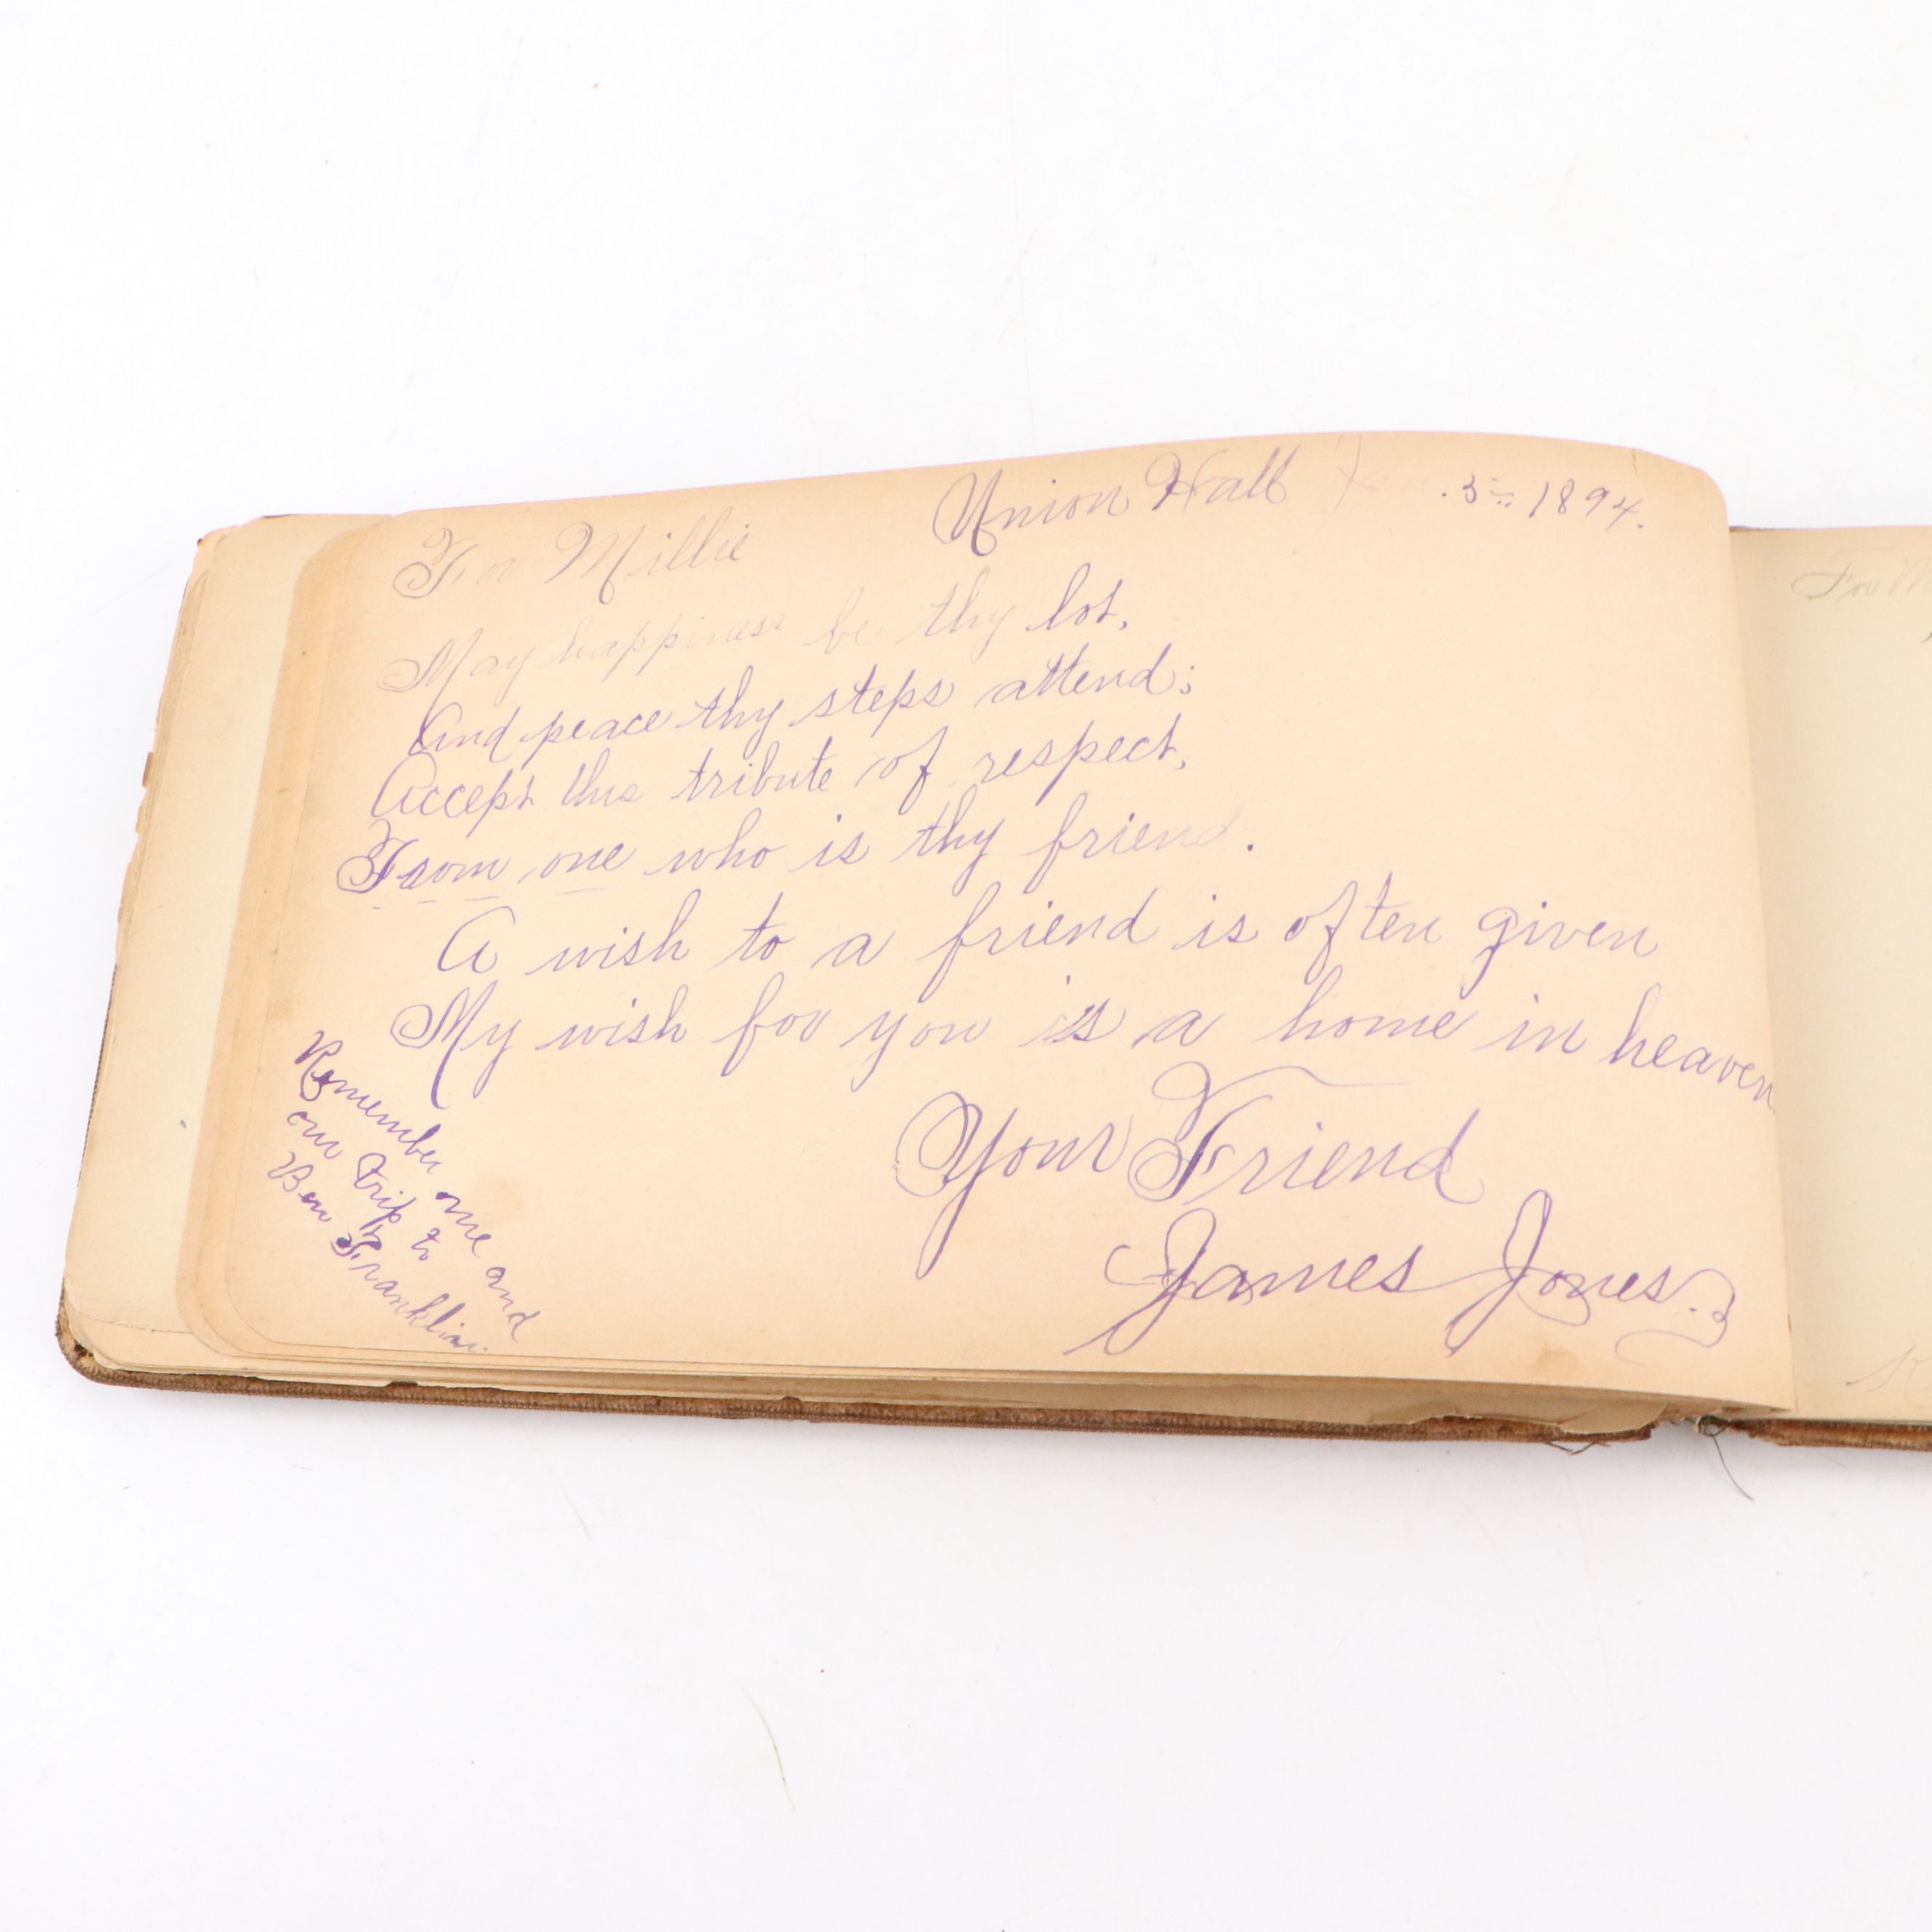 Union Hall 5th 1894.
For Millie
May happiness be thy lot,
And peace thy steps attend;
Accept this tribute of respect,
From one who is thy friend.
A wish to a friend is often given
My wish for you is a home in heaven
Your Friend
James Jones.
Remember me and
our trip to
Ben Franklin.
For M